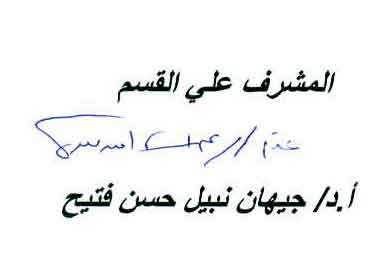 المشرف علي القسم
أ.د/ جيهان نبيل حسن فتيح